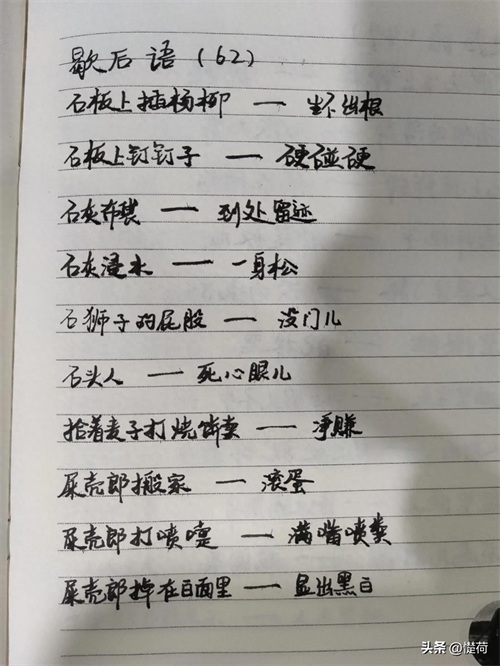 歇后语（62）
石板上插杨柳 — 生不出根
石板上钉钉子 — 硬碰硬
石灰布袋 — 到处留迹
石灰浸水 — 一身松
石狮子的屁股 — 没门儿
石头人 — 死心眼儿
拾着麦子打烧饼卖 — 净赚
屎壳郎搬家 — 滚蛋
屎壳郎打喷嚏 — 满嘴喷粪
屎壳郎掉在白面里 — 显出黑白
头条 @憷荷